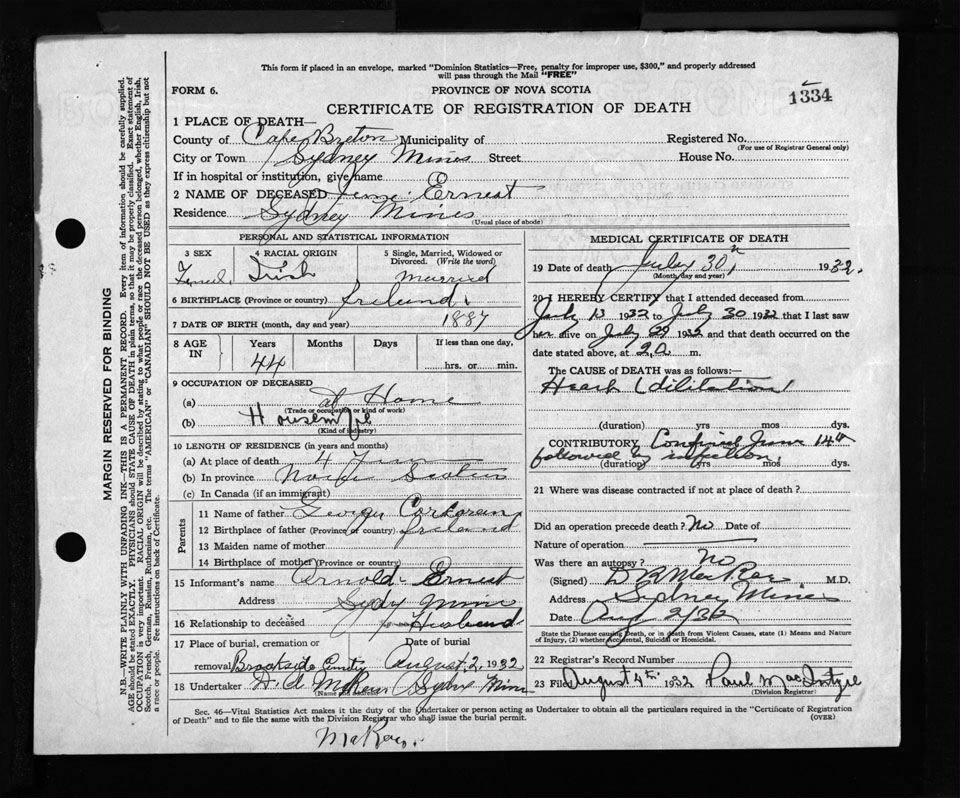 This form if placed in an envelope, marked "Dominion Statistics—Free, penalty for improper use, $300," and properly addressed
will pass through the Mail "FREE"
FORM 6.
PROVINCE OF NOVA SCOTIA
1334
CERTIFICATE OF REGISTRATION OF DEATH
1 PLACE OF DEATH—
County of Cape Breton Municipality of Registered No.
(For use of Registrar General only)
City or Town Sydney Mines Street House No.
If in hospital or institution, give name
2 NAME OF DECEASED Ernest
Residence Sydney Mines
(Usual place of abode)
PERSONAL AND STATISTICAL INFORMATION
3 SEX
4 RACIAL ORIGIN
5 Single, Married, Widowed or
Divorced. (Write the word)
Irish Married
6 BIRTHPLACE (Province or country) Ireland
7 DATE OF BIRTH (month, day and year) 1887
8 AGE IN
Years Months Days If less than one day,
44
hrs. or min.
9 OCCUPATION OF DECEASED
(a) at Home
(Trade or occupation or kind of work)
(b) Housewife
(Kind of industry)
10 LENGTH OF RESIDENCE (in years and months)
(a) At place of death 4
(b) In province Nova Scotia
(c) In Canada (if an immigrant)
Parents
11 Name of father George
12 Birthplace of father (Province or country) Ireland
13 Maiden name of mother
14 Birthplace of mother (Province or country)
15 Informant's name Arnold Ernest
Address Sydy Mines
16 Relationship to deceased Husband
17 Place of burial, cremation or Date of burial
removal Brookside August 2, 1932
18 Undertaker Sydney Mines
MEDICAL CERTIFICATE OF DEATH
19 Date of death July 30, 1932.
(Month, day and year)
20 I HEREBY CERTIFY that I attended deceased from
July 13 1932 to July 30 1932 that I last saw
her alive on July 29 1932 and that death occurred on the
date stated above, at m.
The CAUSE of DEATH was as follows:—
Heart (dilitation)
(duration) yrs mos dys.
CONTRIBUTORY Confined June 14th
followed by infection
(duration) yrs mos dys.
21 Where was disease contracted if not at place of death?
Did an operation precede death? No Date of
Nature of operation
Was there an autopsy? No
(Signed) M.D.
Address Sydney Mines
Date Aug 2/32
State the Disease causing Death, or in death from Violent Causes, state (1) Means and Nature
of Injury, (2) whether Accidental, Suicidal or Homicidal.
22 Registrar's Record Number
23 Filed August 4th 1932 Paul MacIntyre
(Division Registrar)
Sec. 46—Vital Statistics Act makes it the duty of the Undertaker or person acting as Undertaker to obtain all the particulars required in the "Certificate of Registration
of Death" and to file the same with the Division Registrar who shall issue the burial permit.
(OVER)
MARGIN RESERVED FOR BINDING
N.B.—WRITE PLAINLY WITH UNFADING INK—THIS IS A PERMANENT RECORD. Every item of information should be carefully supplied.
AGE should be stated EXACTLY. PHYSICIANS should STATE CAUSE OF DEATH in plain terms, so that it may be properly classified. Exact statement of
OCCUPATION is very important. RACIAL ORIGIN will be described by stating to what people or race the deceased person belonged, whether English, Irish,
Scotch, French, German, Russian, Ruthenian, etc. The terms "AMERICAN" or "CANADIAN" SHOULD NOT BE USED as they express citizenship but not
a race or people. See instructions on back of Certificate.